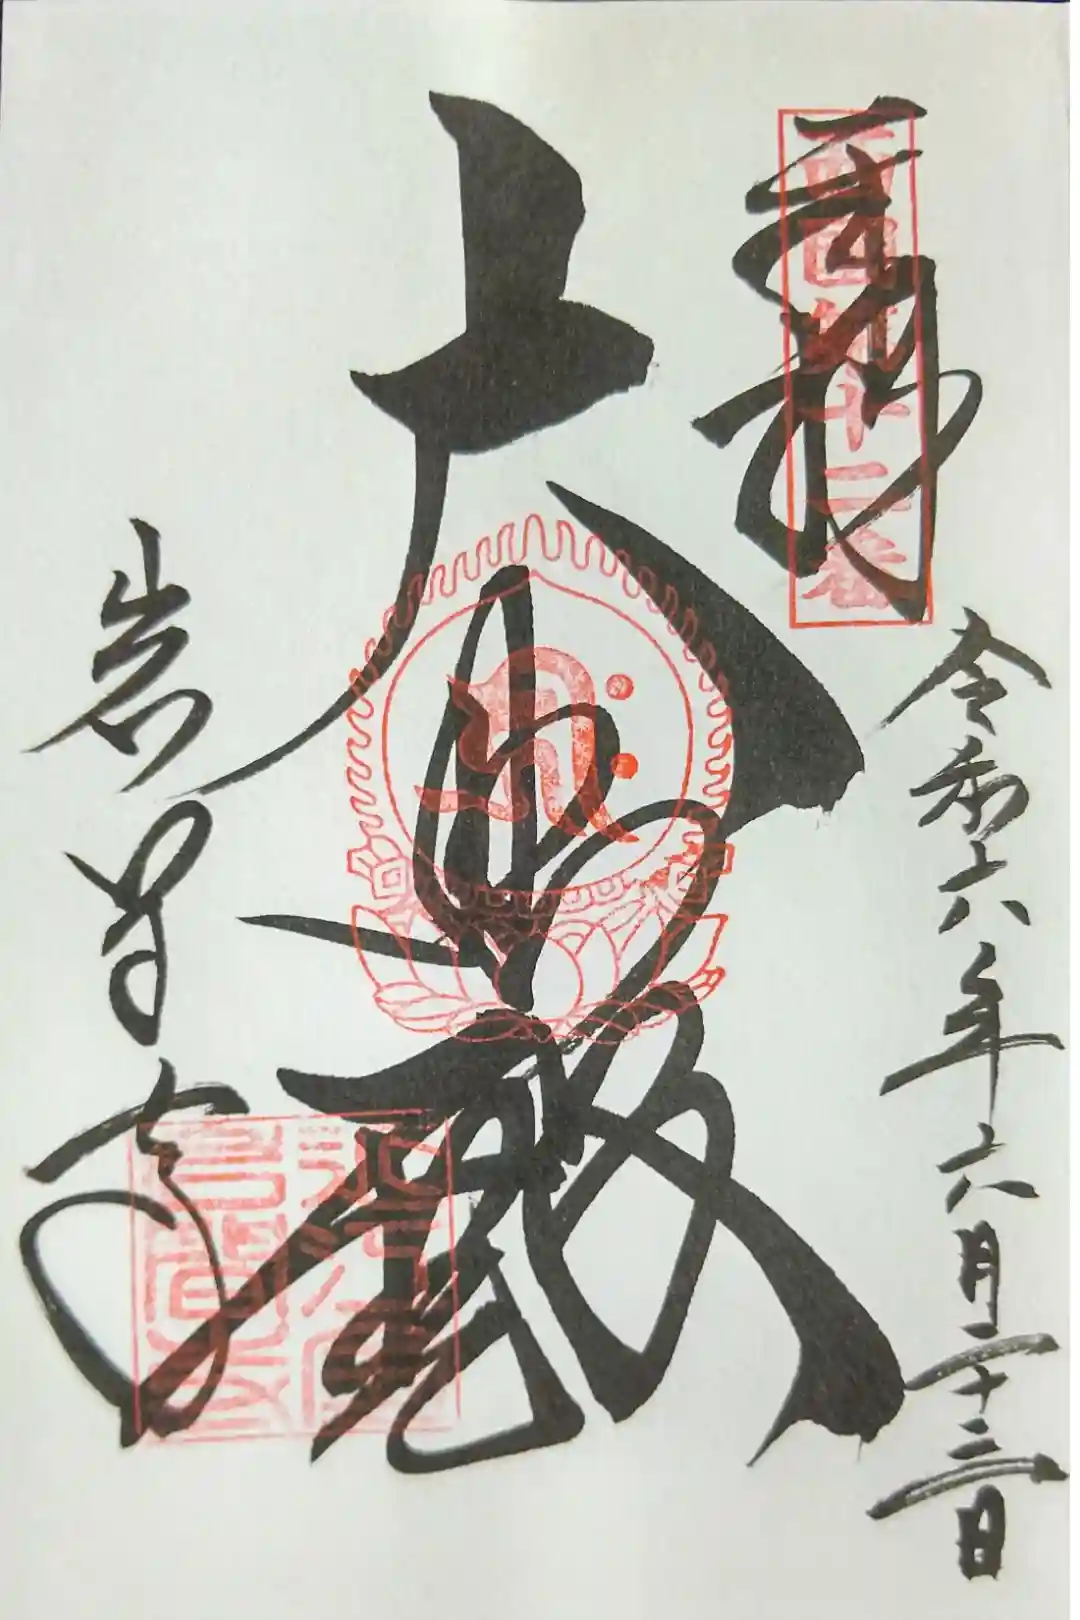 奉拝
西国第十二番
令和六年六月二十三日
大悲殿
岩間寺